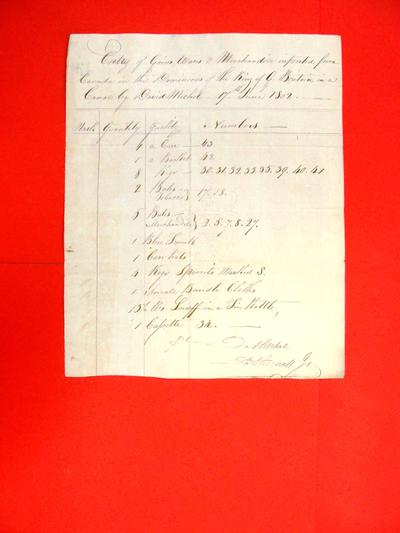 Entry of Goods Wares & Merchandise imported from
Canada in the Dominions of the King of G. Britain, in a
Canoe by David Mitchel 17th June 1802
Mark Quantity Quality Numbers
4 a Case 43
1 a Basket 42
8 Kegs 30. 31. 32. 33. 35. 39. 40. 41
2 Bales Tobacco 17. 18.
5 Bales Merchandise 2. 5. 7. 8. 27.
1 Blue Trunk
1 Case hats
4 Kegs Spirits Marked S.
1 Small Bundle Cloths
Snuff in a Tin Kettle
1 Cassette 34.